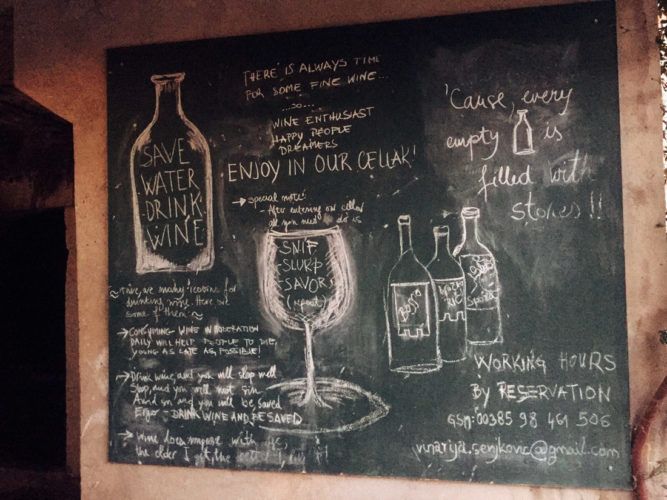 SAVE
WATER
DRINK
WINE
THERE IS ALWAYS TIME
FOR SOME FINE WINE...
...so...
WINE ENTHUSIAST
HAPPY PEOPLE
DREAMERS
ENJOY IN OUR CELLAR!
→ special note:
- After entering our cellar
all you need do is
SNIF
SLURP
SAVOR
(repeat)
'Cause, every
empty is
filled with
stories!!
many reasons for
drinking wine. Here are
some of them ~
→ CONSUMING WINE IN MODERATION
DAILY WILL HELP PEOPLE TO DIE
YOUNG AS LATE AS POSSIBLE!
→ Drink wine, and you will sleep well
Sleep, and you will not sin
Avoid sin and you will be saved
Ergo - DRINK WINE AND BE SAVED
→ Wine does improve with age,
the older I get, the better I
Bossa
WORKING HOURS
BY RESERVATION
GSM: 00385 98 461 506
vinarija.senjkovic@gmail.com